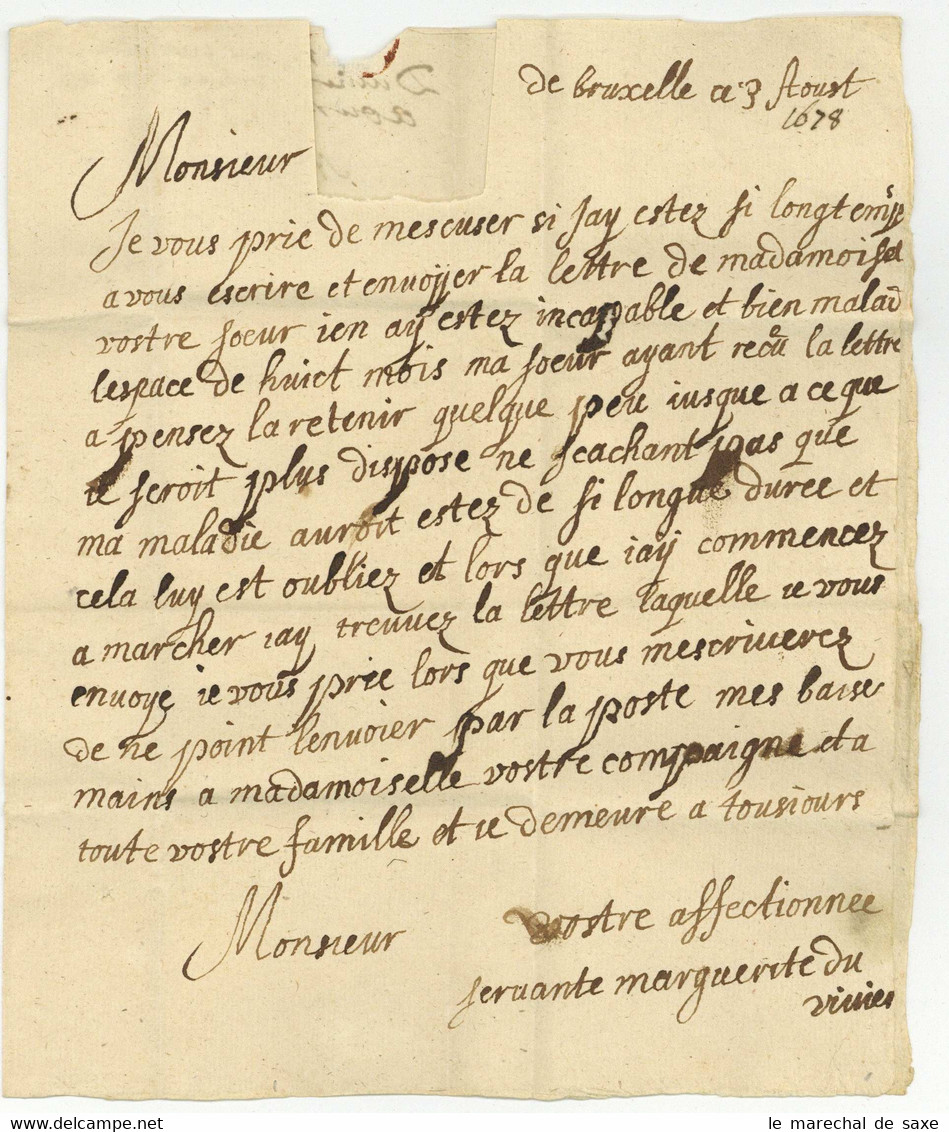 de bruxelle ce 3 Aoust
1678
Monsieur
Je vous prie de mescuser si Jay estez si longtemps
a vous escrire et envoyer la lettre de madamoisel
vostre soeur ien ay estez incapable et bien malad
lespace de huict mois ma soeur ayant recu la lettre
a pensez la retenir quelque peu iusque a ce que
ie seroit plus dispose ne scachant pas que
ma maladie auroit estez de si longue durée et
cela luy est oubliez et lors que iay commencez
a marcher iay treuvez la lettre laquelle ie vous
envoye ie vous prie lors que vous mescriverez
de ne point lenvoier par la poste mes baise
mains a madamoiselle vostre compaigne et a
toute vostre famille et ie demeure a tousiours
Monsieur vostre affectionnee
servante marguerite du
vivies
delcampe.net
le marechal de saxe